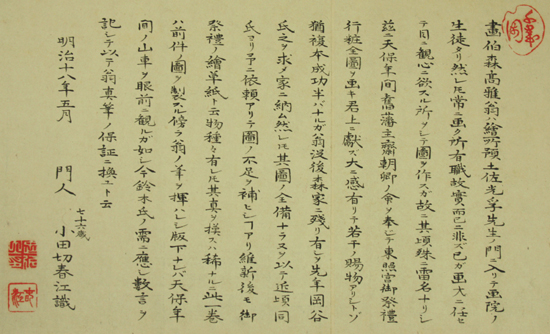 畫伯森高雅翁ハ繪所預土佐光孚先生ノ門ニ入リテ画院ノ
生徒タリ然レ𪜈常ニ画ク所有職故實而已ニ非ス己ガ画才ニ任セ
テ目ニ観心ニ欲スル所ヲシテ圖ヲ作スガ故ニ其頃殊ニ雷名ナリシ
茲ニ天保年間舊藩主齋朝卿ノ命ヲ奉シテ東照宮御祭禮
行粧全圖ヲ画キ君上ニ獻ズ大ニ感有リテ若干ノ賜物アリシトゾ
猶複本成功半バナルガ翁没後森家ニ残リ有シヲ先年岡谷
氏之ヲ求メ家ニ納ム然レ𪜈其圖ノ全備ナラヌヲ以テ近頃同
氏ヨリ予ニ依頼アリテ圖ノ不足ヲ補ヒシヿアリ維新後モ御
祭禮ノ繪草紙ト云物種々有レ𪜈其真ヲ模スハ稀ナルニ此一巻
ハ前件ノ圖ヲ製スル傍ラ翁ノ筆ヲ揮ハレシ版下ナレバ天保年
間ノ山車ヲ眼前ニ観ルガ如シ今鈴木氏ノ需ニ應シ數言ヲ
記シテ以テ翁真筆ノ保証ニ換ユト云
明治十八年五月 門人 七十六歳 小田切春江識